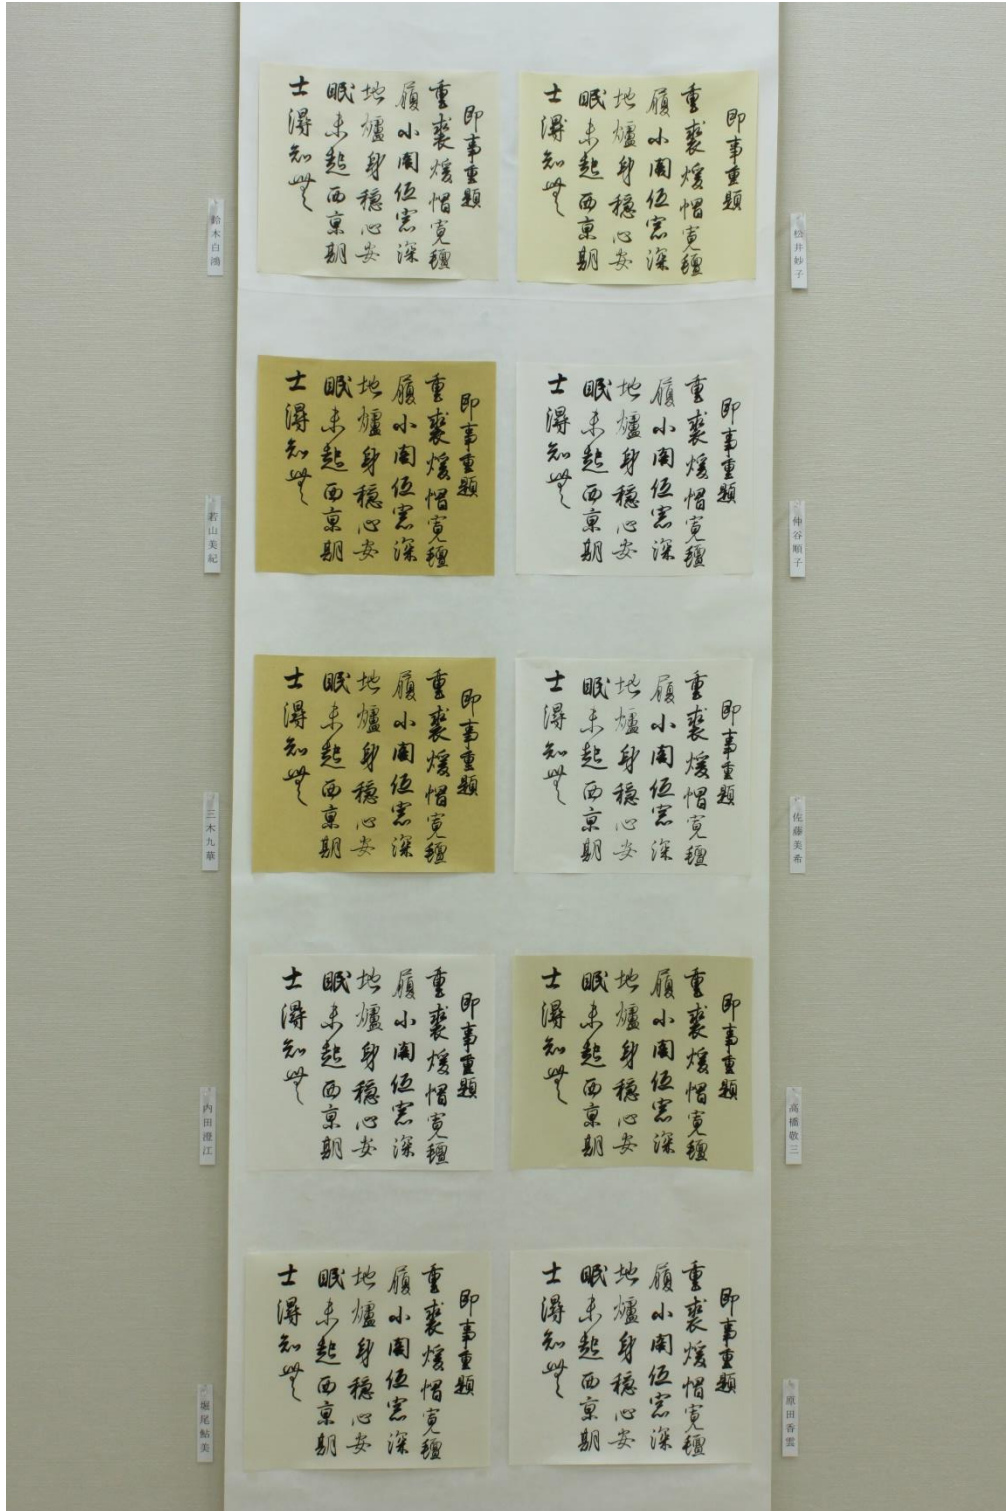 松井紗子
即事重題
重裘煖帽寛氈
履小閣低窓深
地爐身穏心安
眠未起西京朝
士得知無
即事重題
重裘煖帽寛氈
履小閣低窓深
地爐身穏心安
眠未起西京朝
士得知無
鈴木白鴻
仲谷順子
即事重題
重裘煖帽寛氈
履小閣低窓深
地爐身穏心安
眠未起西京朝
士得知無
即事重題
重裘煖帽寛氈
履小閣低窓深
地爐身穏心安
眠未起西京朝
士得知無
若山美紀
佐藤美希
即事重題
重裘煖帽寛氈
履小閣低窓深
地爐身穏心安
眠未起西京朝
士得知無
即事重題
重裘煖帽寛氈
履小閣低窓深
地爐身穏心安
眠未起西京朝
士得知無
三木九華
高橋敬三
即事重題
重裘煖帽寛氈
履小閣低窓深
地爐身穏心安
眠未起西京朝
士得知無
即事重題
重裘煖帽寛氈
履小閣低窓深
地爐身穏心安
眠未起西京朝
士得知無
内田澄江
原田香雲
即事重題
重裘煖帽寛氈
履小閣低窓深
地爐身穏心安
眠未起西京朝
士得知無
即事重題
重裘煖帽寛氈
履小閣低窓深
地爐身穏心安
眠未起西京朝
士得知無
堀尾鮎美